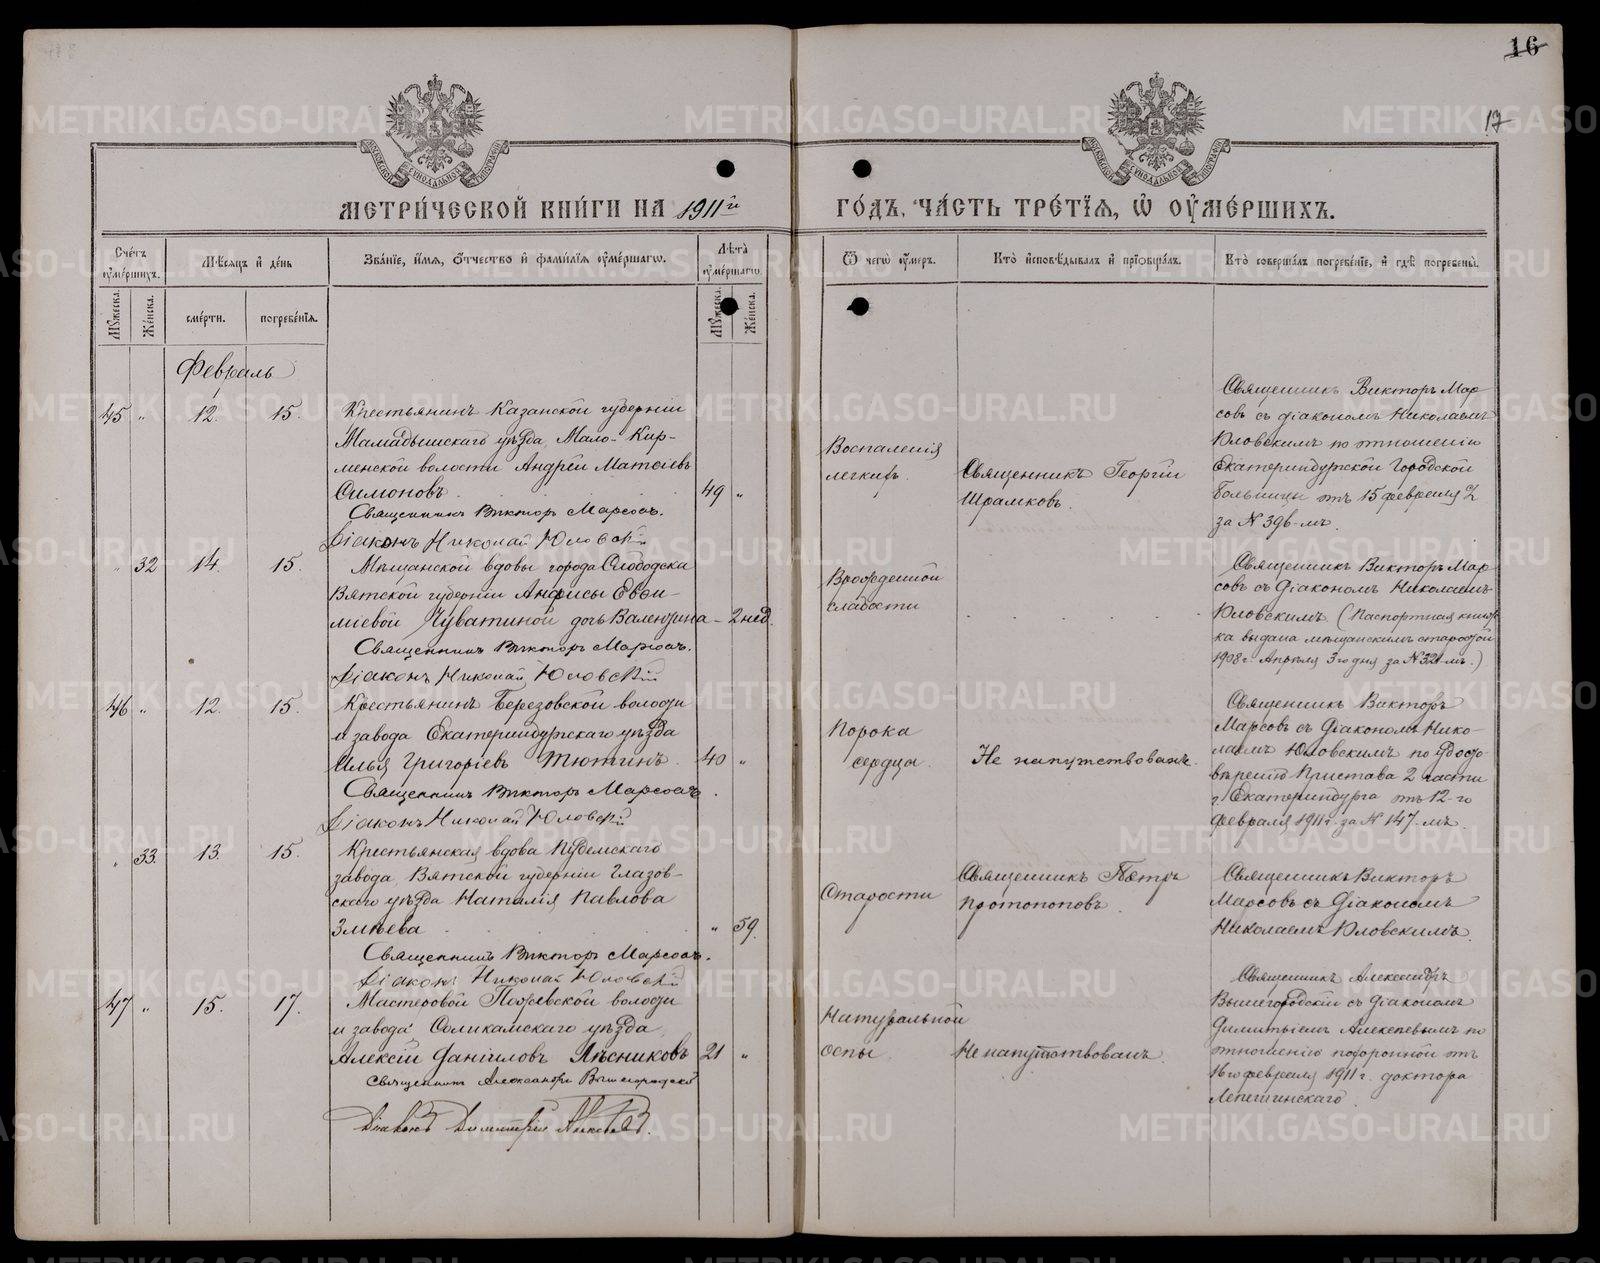 16
17
МЕТРИЧЕСКОЙ КНИГИ НА 1911й ГОДЪ, ЧАСТЬ ТРЕТІЯ, Ѡ ОУМЕРШИХЪ.
Счетъ оумершихъ.
Мѣсяцъ и день
Званіе, имя, отчество и фамилія оумершагѡ.
Лѣта оумершагѡ.
Ѿ чегѡ оумеръ.
Кто исповѣдывалъ и пріобщалъ.
Кто совершалъ погребеніе, и гдѣ погребены.
Мужеска.
Женска.
смерти.
погребенія.
Мужеска.
Женска.
Февраль
45 " 12. 15.
Крестьянинъ Казанской губерніи
Мамадышскаго уѣзда, Мало-Кир-
менской волости Андрей Матвіевъ
Симоновъ.
49 "
Священникъ Викторъ Марсовъ.
Діаконъ Николай Юловскій
Воспаленія
легкихъ.
Священникъ Георгій
Шрамковъ.
Священникъ Викторъ Мар-
совъ съ діакономъ Николаемъ
Юловскимъ по отношенію
Екатеринбургской Городской
больницы отъ 15 февраля
за № 396-мъ.
" 32 14. 15.
Мѣщанской вдовы города Слободска
Вятской губерніи Анфисы Евѳи-
міевой Чуватиной дочь Валентина
- 2 нед.
Священникъ Викторъ Марсовъ.
Діаконъ Николай Юловскій
Врожденной
слабости
Священникъ Викторъ Мар-
совъ съ Діакономъ Николаемъ
Юловскимъ. (Паспортная книж-
ка выдана мѣщанскимъ старостой
1908 г. Апрѣля 3го дня за № 321-мъ.)
46 " 12. 15.
Крестьянинъ Березовской волости
и завода Екатеринбургскаго уѣзда
Илья Григоріевъ Тютинъ.
40 "
Священникъ Викторъ Марсовъ.
Діаконъ Николай Юловскій
Порока
сердца.
Не напутствованъ.
Священникъ Викторъ
Марсовъ съ Діакономъ Нико-
лаемъ Юловскимъ по удосто-
вѣренію Пристава 2 части
г. Екатеринбурга отъ 12-го
февраля 1911 г. за № 147-мъ.
" 33. 13. 15.
Крестьянская вдова Пудемскаго
завода, Вятской губерніи Глазов-
скаго уѣзда Наталія Павлова
Змѣева
" 59.
Священникъ Викторъ Марсовъ.
Діаконъ Николай Юловскій
Старости
Священникъ Петръ
Протопоповъ.
Священникъ Викторъ
Марсовъ съ Діакономъ
Николаемъ Юловскимъ.
47 " 15. 17.
Мастеровой Пожевской волости
и завода Соликамскаго уѣзда,
Алексій Даніиловъ Лѣсниковъ
21 "
Священникъ Александръ Вышегородскій
Діаконъ Димитрій
Натуральной
оспы.
Не напутствованъ.
Священникъ Александръ
Вышегородскій съ Діакономъ
Димитріемъ Алексѣевымъ по
отношенію похоронной отъ
16го февраля 1911 г. доктора
Лепешинскаго.
METRIKI.GASO-URAL.RU